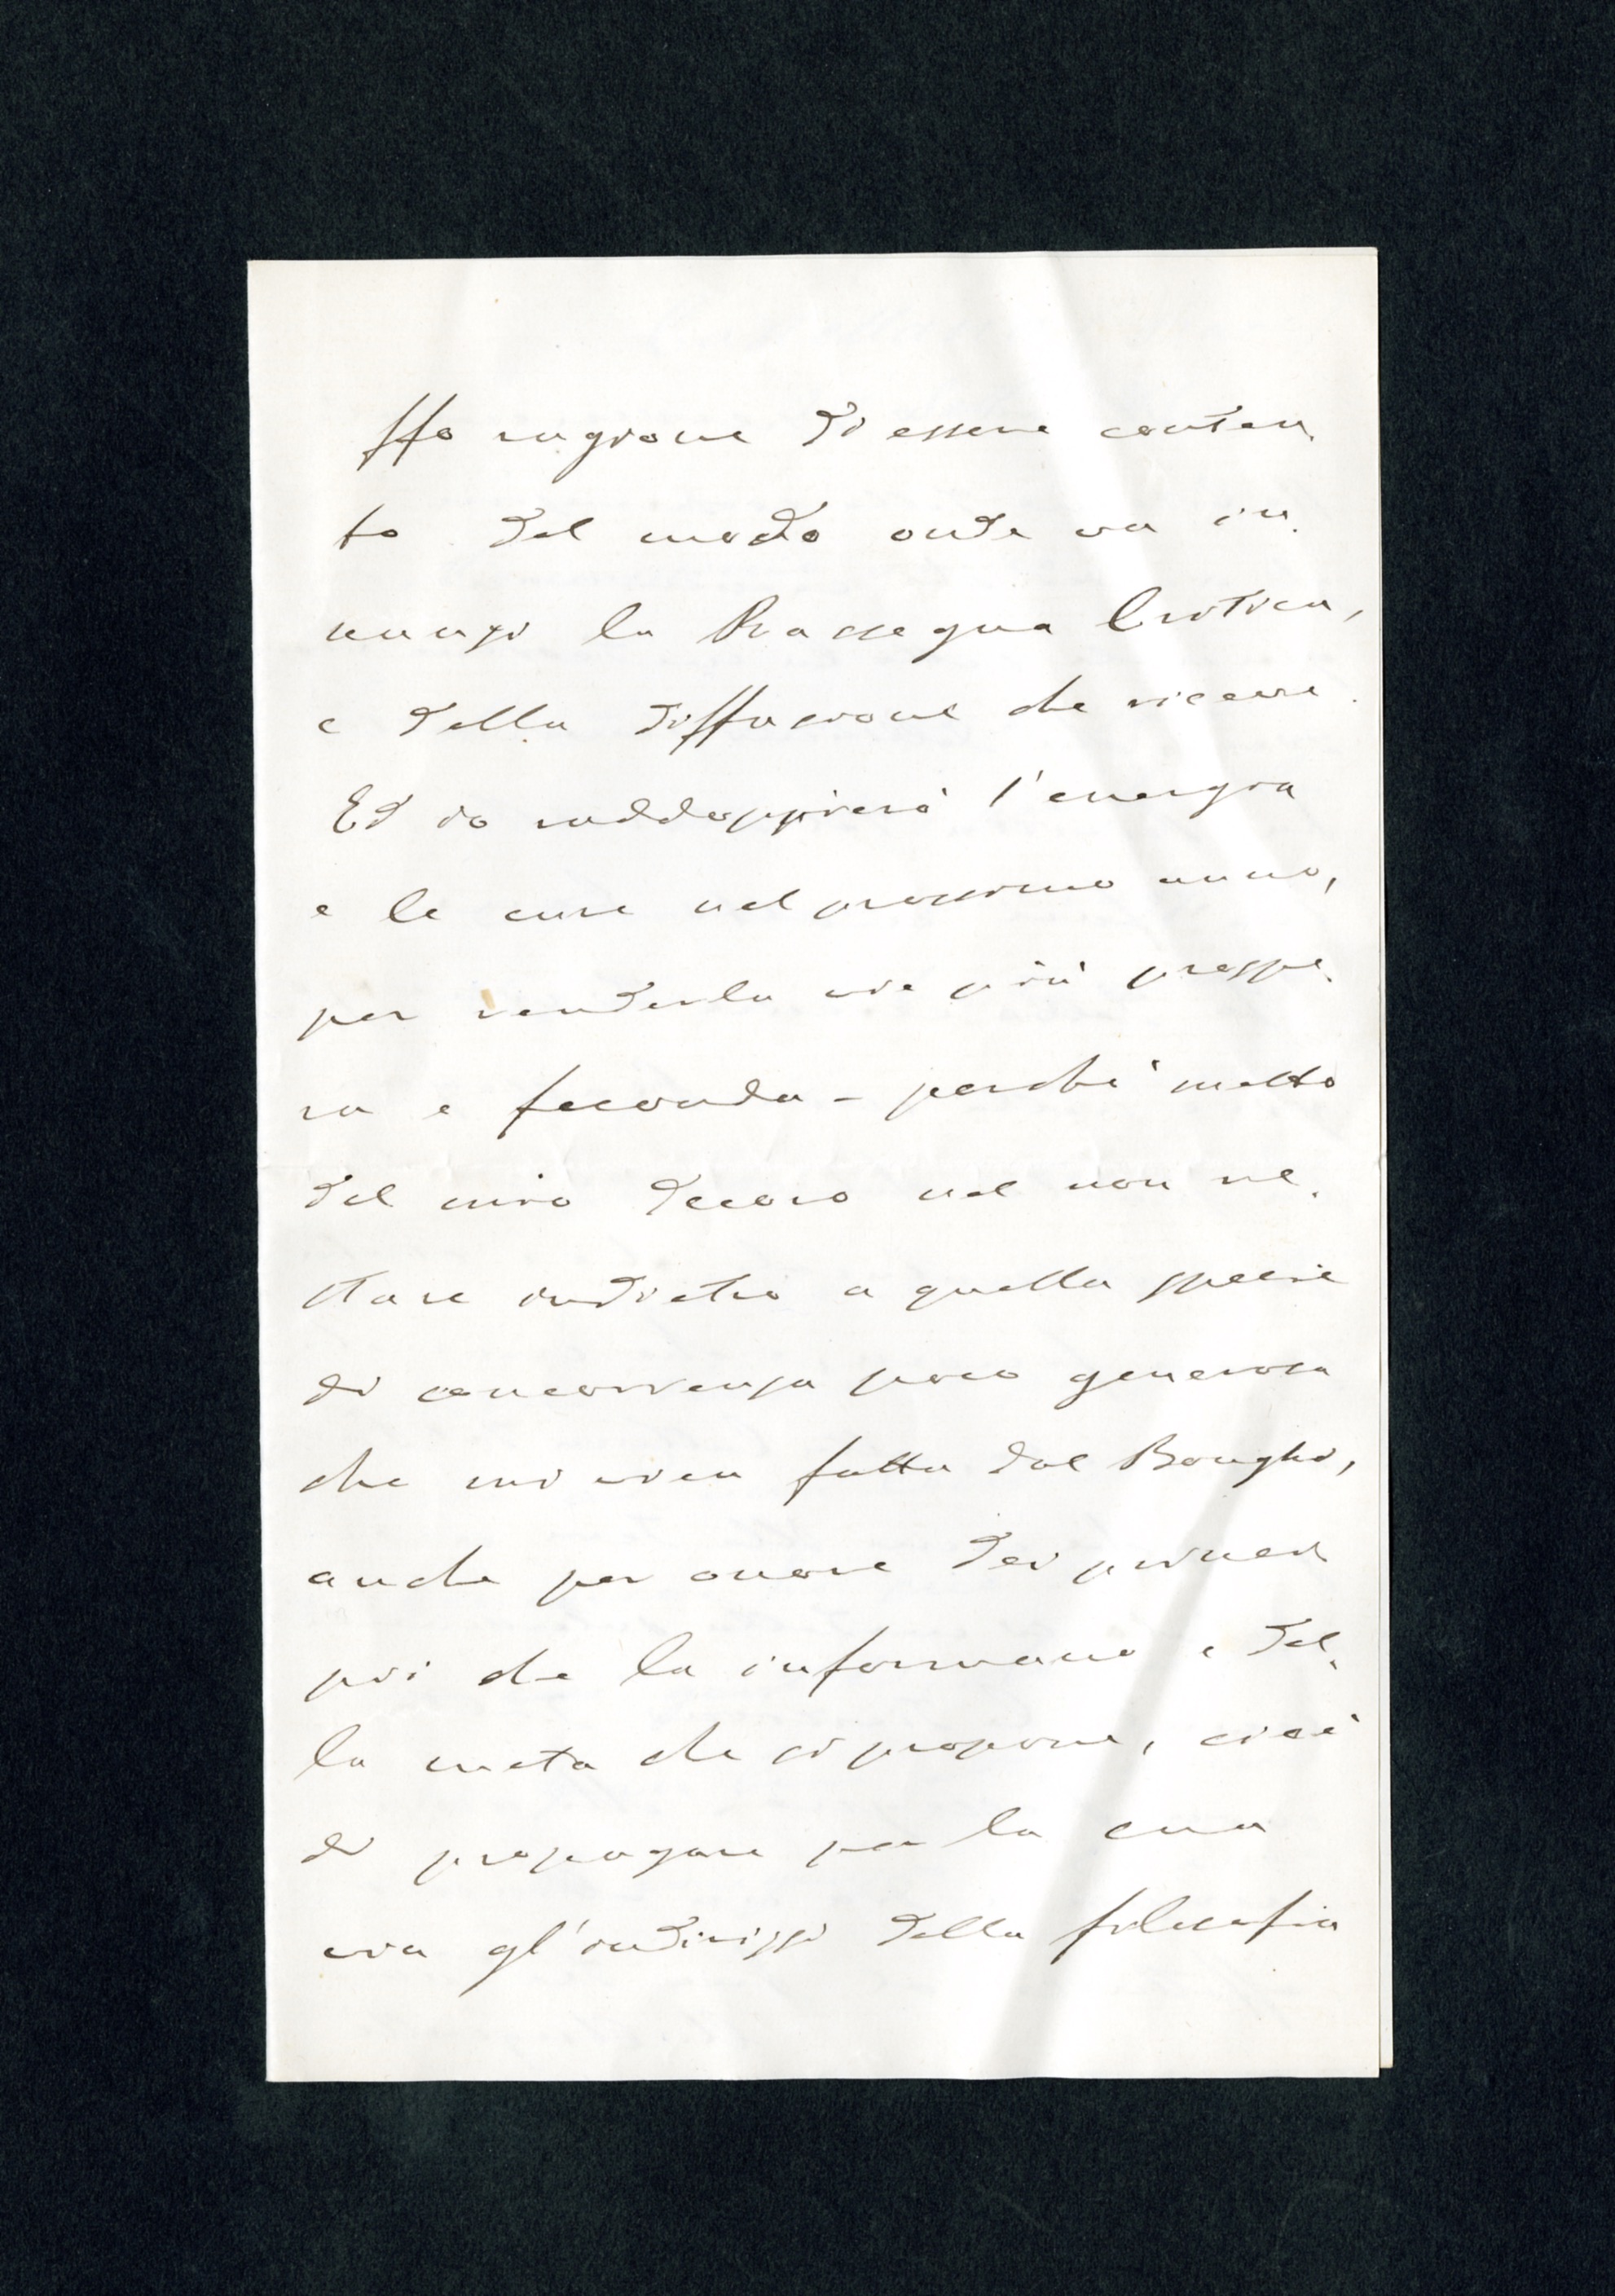 Ho ragione di essere conten-
to del modo onde va in-
nanzi la Rassegna Critica,
e della diffusione che riceve.
Ed io raddoppierò l'energia
e le cure nel prossimo anno,
per renderla vie più prospe-
ra e feconda – perchè metto
del mio decoro nel non re-
stare indietro a quella specie
di concorrenza poco generosa
che mi vien fatta dal Bonghi,
anche per onore dei princi-
pii che la informano e del-
la meta che si propone, cioè
di propagare per la sua
via gl'indirizzi della filosofia